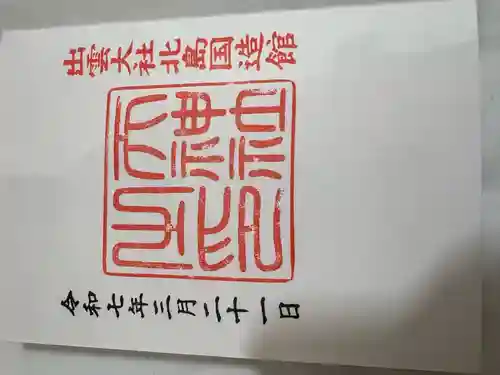 出雲大社北島国造館
天神社
之印
令和七年三月二十一日